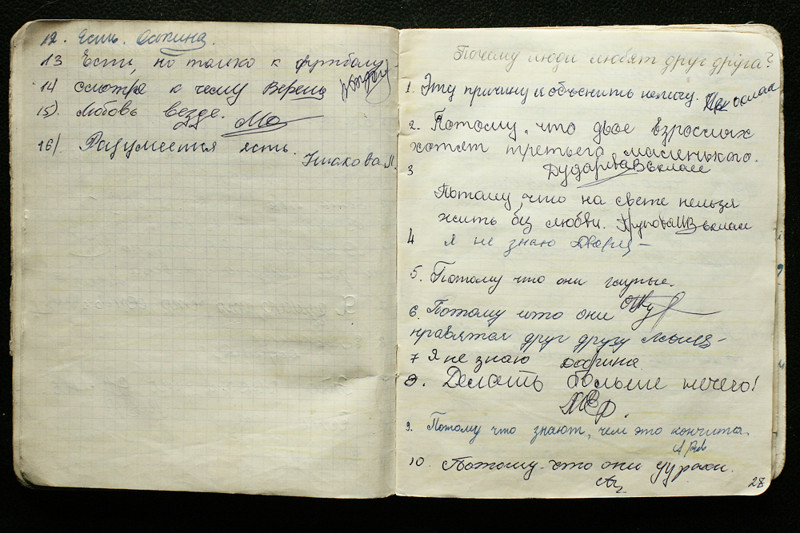 12. Есть. Осокина.
13 Есть, но только к футболу.
14 смотря к чему Верещ
15) Любовь везде.
16) Разумеется есть.
Ушакова Л.
Почему люди любят друг друга?
1. Эту причину и объяснить нельзя.
2. Потому, что двое взрослых
хотят третьего масинького.
3 Дударева В класс
Потому, что на свете нельзя
жить без любви. В класс
4 я не знаю
5. Потому что они глупые.
6. Потому что они
нравятся друг другу
7 Я не знаю
8. Делать больше нечего!
9. Потому что знают, чем это кончится.
10. Потому-что они дураки.
28